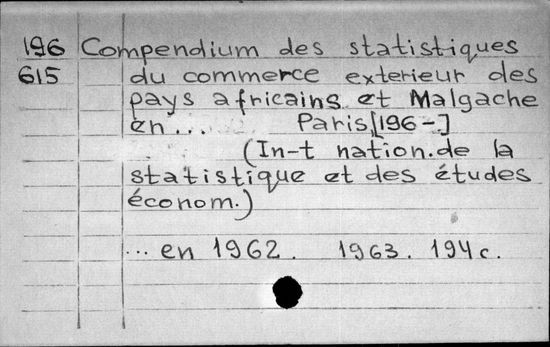 196 Compendium des statistiques
615 du commerce exterieur des
pays africains et Malgache
en... Paris,[196-]
(In-t nation.de la
statistique et des études
économ.)
... en 1962. 1963. 194 c.